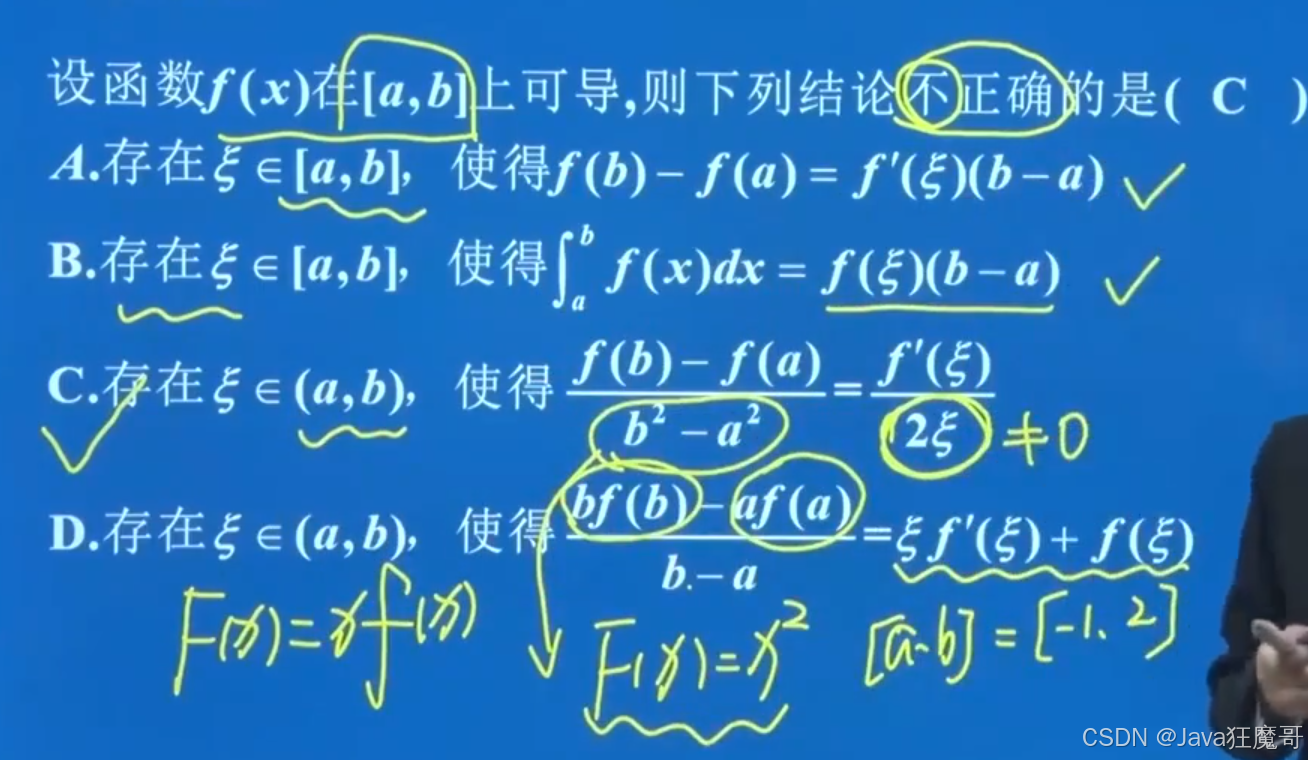 设函数f(x)在[a,b]上可导,则下列结论不正确的是( C )
A.存在ξ∈[a,b], 使得f(b)−f(a)=f′(ξ)(b−a) ✓
B.存在ξ∈[a,b], 使得∫_a^b f(x)dx=f(ξ)(b−a) ✓
C.存在ξ∈(a,b), 使得 (f(b)−f(a))/(b²−a²)=f′(ξ)/(2ξ) ≠0
✓
D.存在ξ∈(a,b), 使得 (bf(b)−af(a))/(b.−a)=ξf′(ξ)+f(ξ)
F(x)=xf(x) F(x)=x² [a,b]=[-1,2]
CSDN @Java狂魔哥